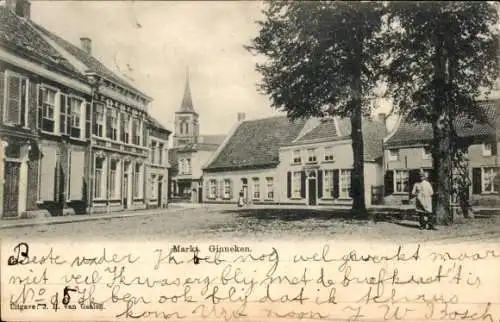 Markt. Ginneken.
Beste vader Ik heb nog wel gewerkt maar
niet veel Ik was erg blij met de briefkaart is
No 5 ben ook erg blij dat ik thuis
kom van W Bosch
Uitgave: J. H. van Gaalen.